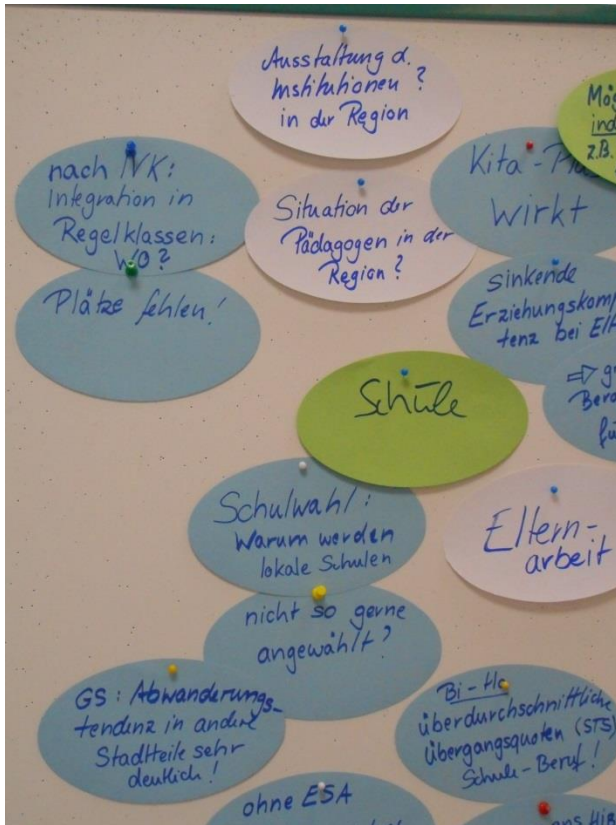 Ausstattung d.
Institutionen ?
in der Region
Mög
ind
z.B.
nach IVK:
Integration in
Regelklassen:
WO?
Plätze fehlen!
Situation der
Pädagogen in der
Region ?
Kita-
wirkt
sinkende
Erziehungskomp
tenz bei Elt
⇒ g
Bera
fü
Schule
Schulwahl:
Warum werden
lokale Schulen
nicht so gerne
angewählt?
Eltern-
arbeit
GS: Abwanderungs-
tendenz in andere
Stadtteile sehr
deutlich!
überdurchschnittliche
Übergangsquoten (STS)
Schule-Beruf!
ohne ESA